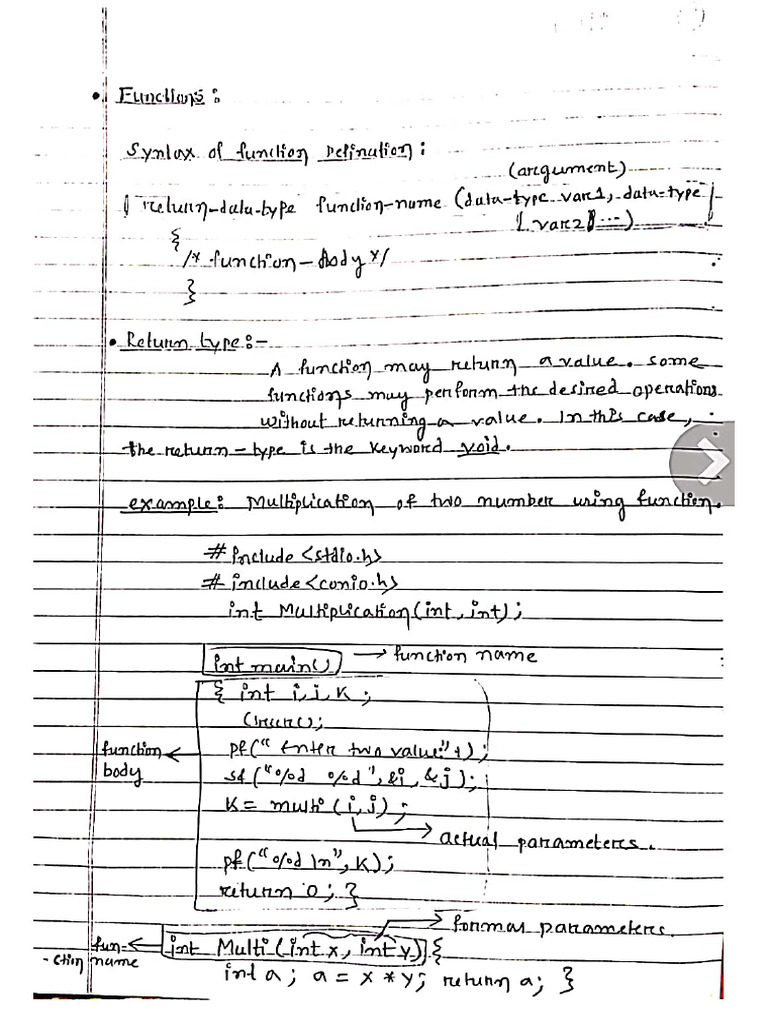 • Functions :
Syntax of function Defination :
(argument)
return-data-type function-name (data-type var1, data-type
var2 ...)
{
/* function-Body */
}
• Return type :-
A function may return a value. Some
functions may perform the desired operations
without returning a value. In this case,
the return-type is the keyword void.
example: Multiplication of two number using function.
# include <stdio.h>
# include <conio.h>
int Multiplication (int, int);
int main() → function name
{ int i, j, K ;
clrscr();
function
body
pf(" Enter two value:" );
sf ("%d %d", &i, &j);
K = multi (i, j) ;
→ actual parameters.
pf("%d \n", K);
return 0; }
→ formal parameters.
fun-
-ction name
int Multi (int x, int y) {
int a ; a = x * y; return a; }